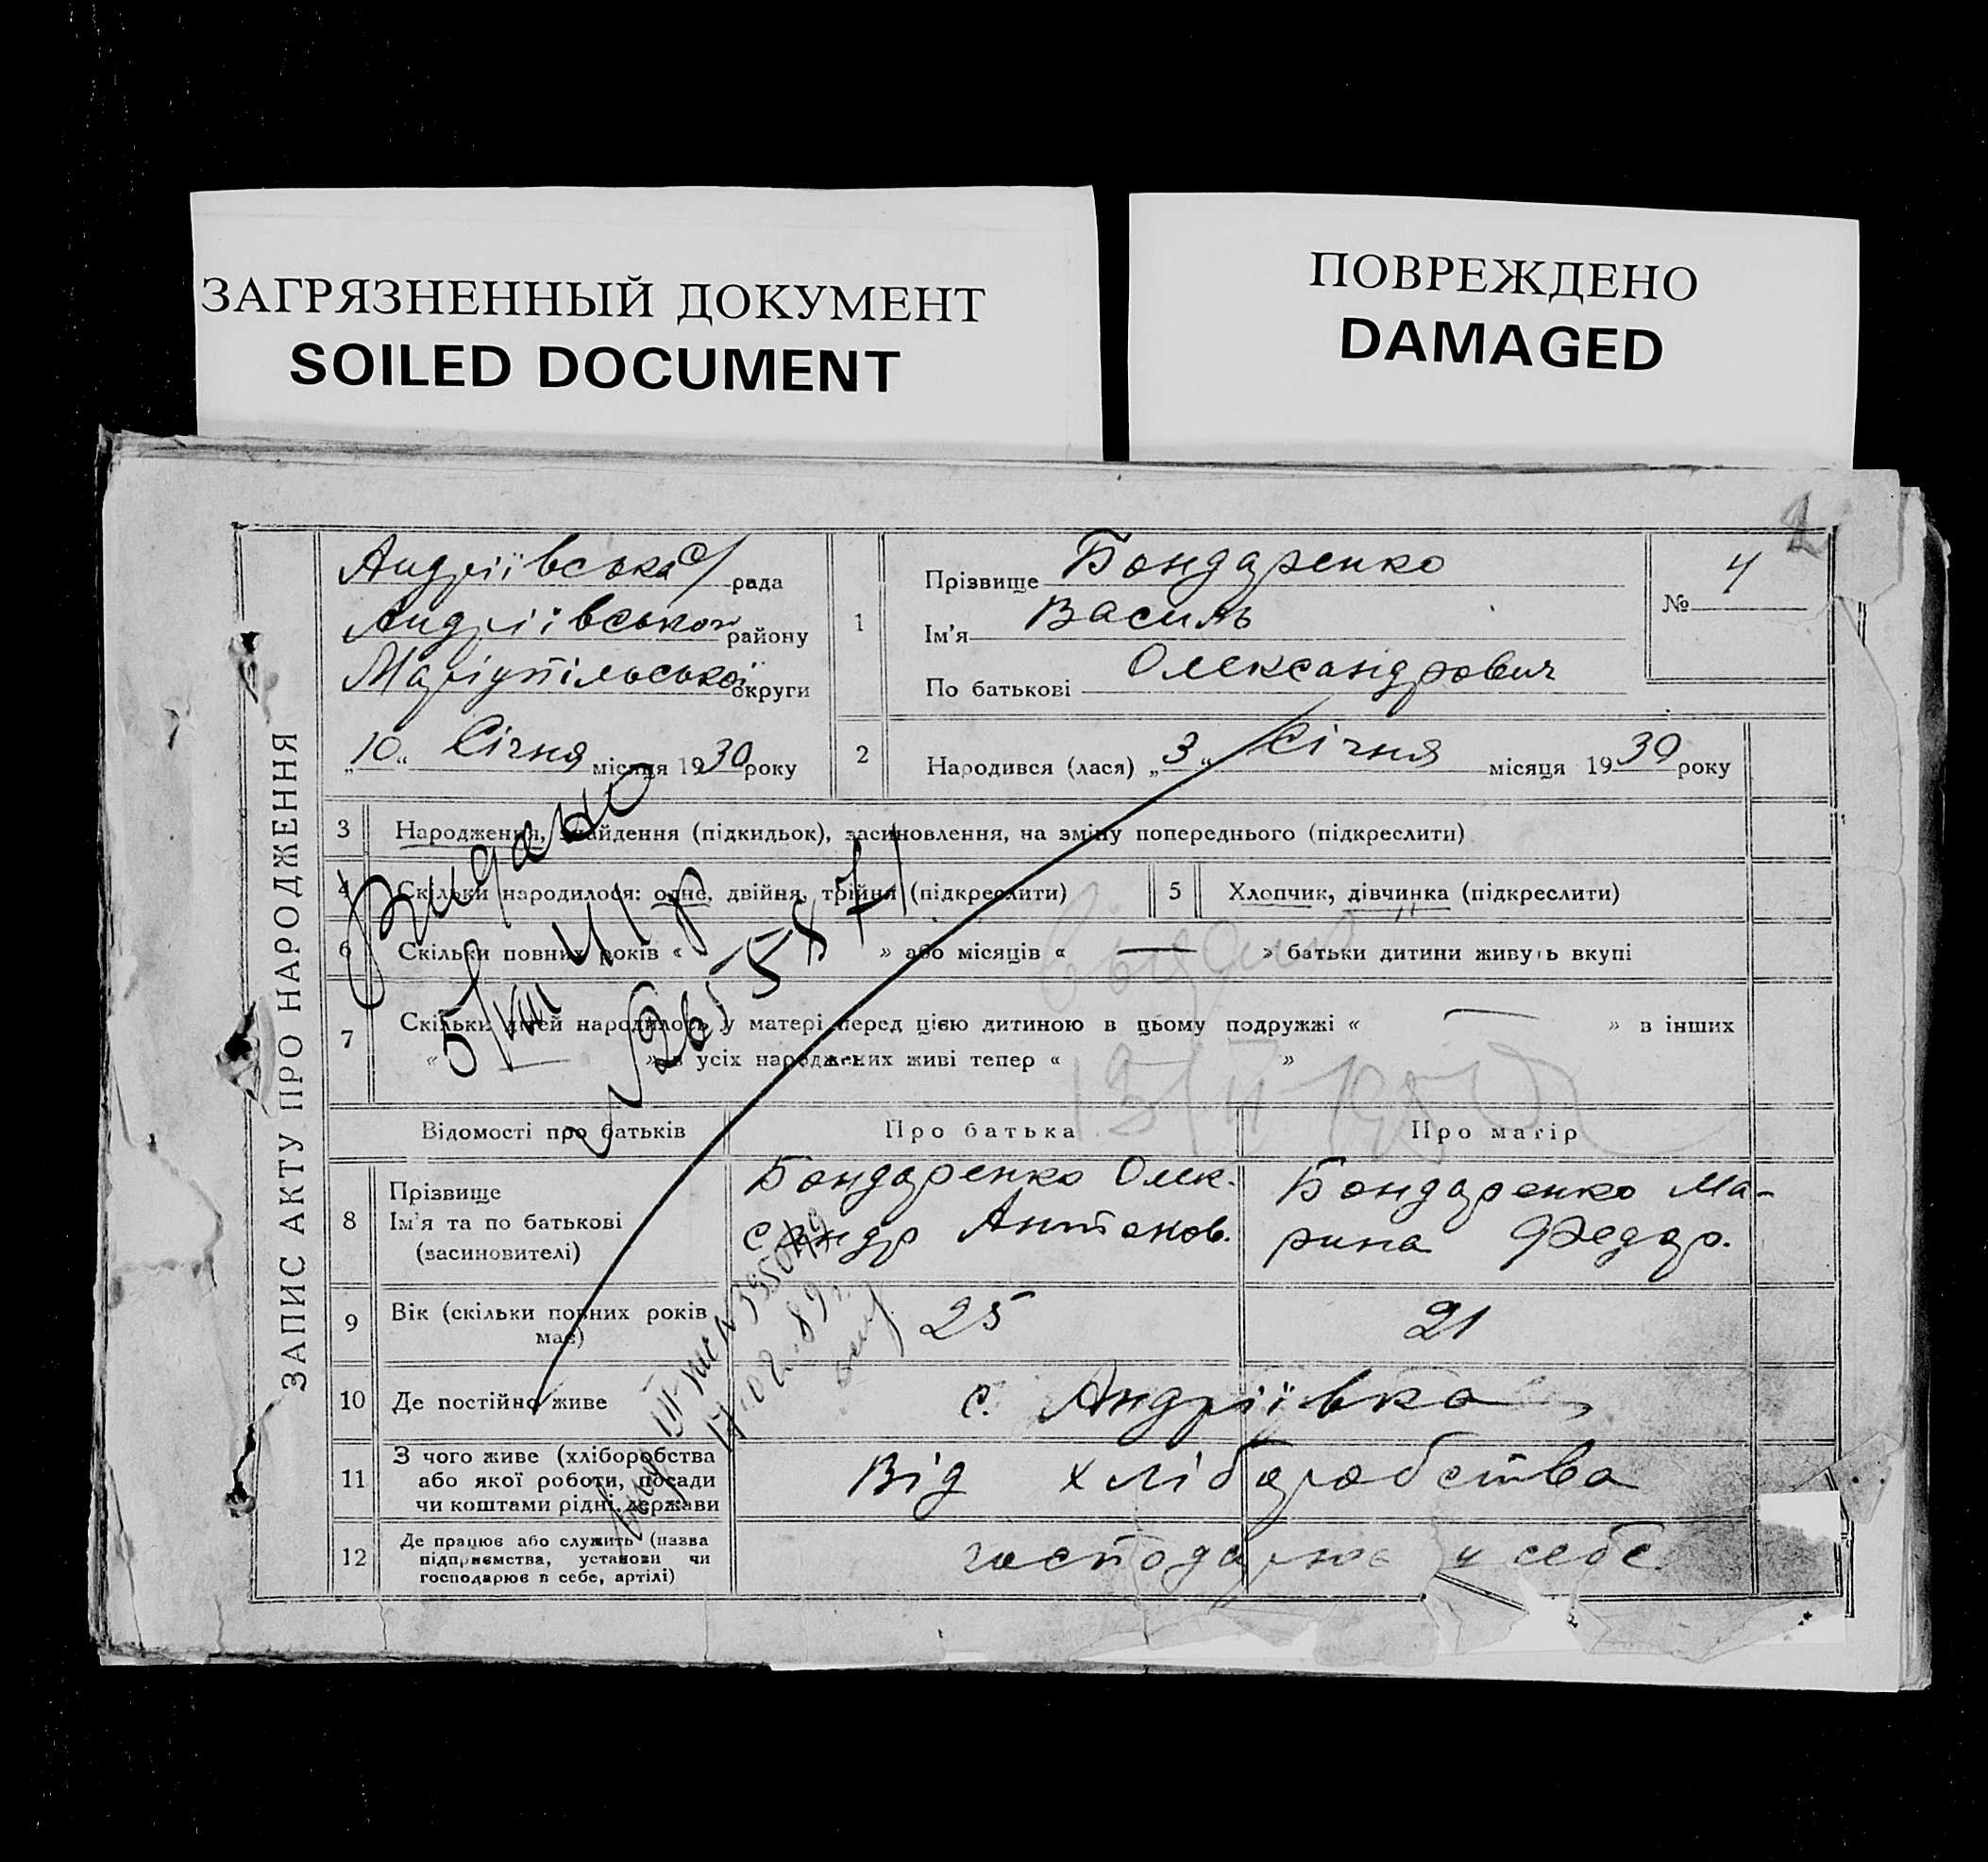 ЗАГРЯЗНЕННЫЙ ДОКУМЕНТ
SOILED DOCUMENT
ПОВРЕЖДЕНО
DAMAGED
2
ЗАПИС АКТУ ПРО НАРОДЖЕННЯ
Андріївська с/рада
Андріївського району
Маріупільської округи
„10“ Січня місяця 1930 року
1
Прізвище Бондаренко
Ім'я Василь
По батькові Олександрович
№ 4
2 Народився (лася) „3“ Січня місяця 1930 року
3 Народження, знайдення (підкидьок), засиновлення, на зміну попереднього (підкреслити)
4 Скільки народилося: одне, двійня, трійня (підкреслити)
5 Хлопчик, дівчинка (підкреслити)
6 Скільки повних років « » або місяців « — » батьки дитини живуть вкупі
7 Скільки дітей народилось у матері перед цією дитиною в цьому подружжі « — » в інших
« — » з усіх народжених живі тепер « »
Видано
5/VIII 41 р
Відомості про батьків
Про батька
Про матір
8 Прізвище
Ім'я та по батькові
(засиновителі)
Бондаренко Олек-
сандр Антонов.
Бондаренко Ма-
рина Федор.
9 Вік (скільки повних років
має)
25
21
10 Де постійно живе
с. Андріївка
11 З чого живе (хліборобства
або якої роботи, посади
чи коштами рідні, держави
Від хліборобства
12 Де працює або служить (назва
підприємства, установи чи
господарює в себе, артілі)
господарює у себе